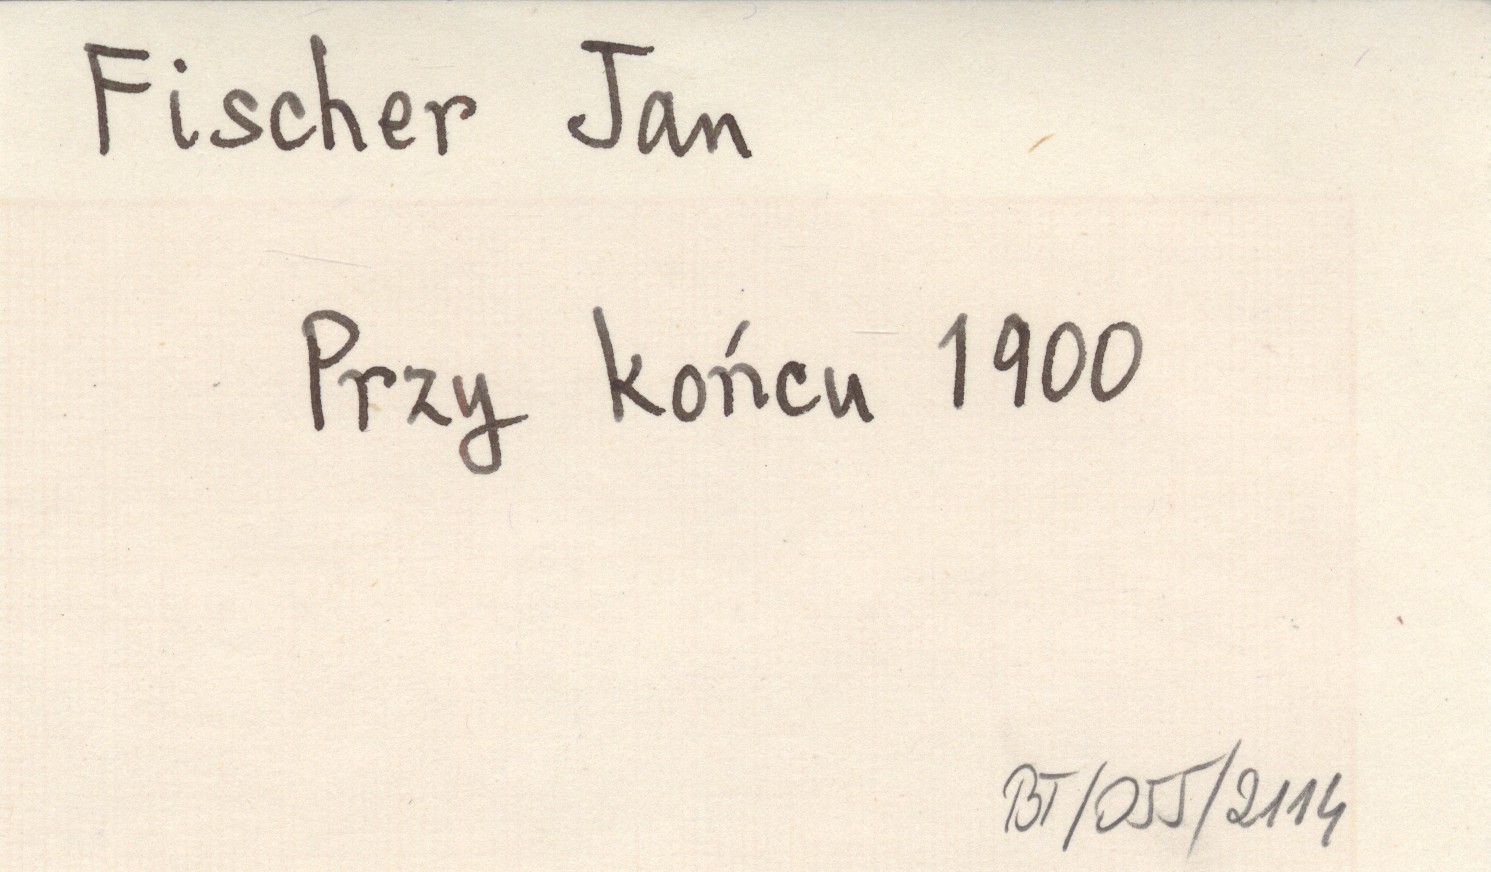 Fischer Jan
Przy końcu 1900
BT/OJJ/2114